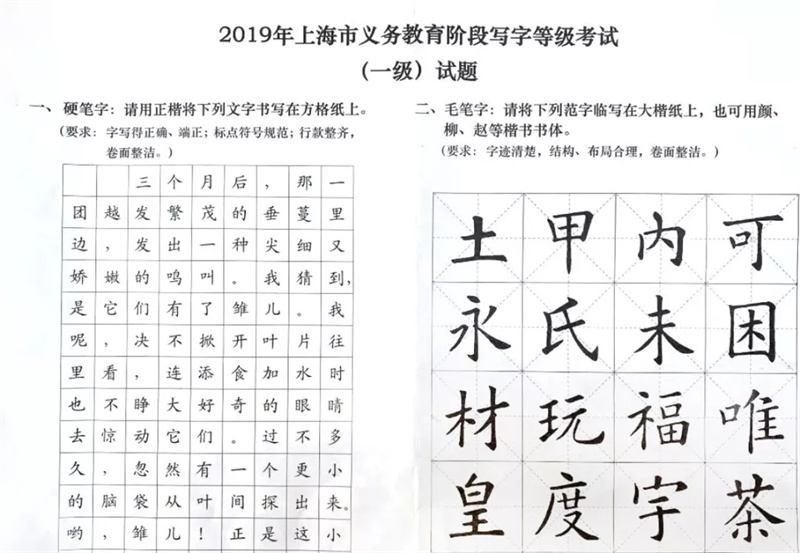 2019年上海市义务教育阶段写字等级考试
（一级）试题
一、硬笔字：请用正楷将下列文字书写在方格纸上。
（要求：字写得正确、端正；标点符号规范；行款整齐，
卷面整洁。）
三个月后，那一
团越发繁茂的垂蔓里
边，发出一种尖细又
娇嫩的鸣叫。我猜到，
是它们有了雏儿。我
呢，决不掀开叶片往
里看，连添食加水时
也不睁大好奇的眼睛
去惊动它们。过不多
久，忽然有一个更小
的脑袋从叶间探出来。
哟，雏儿！正是这小
二、毛笔字：请将下列范字临写在大楷纸上，也可用颜、
柳、赵等楷书书体。
（要求：字迹清楚，结构、布局合理，卷面整洁。）
土甲内可
永氏未困
材玩福唯
皇度宇茶